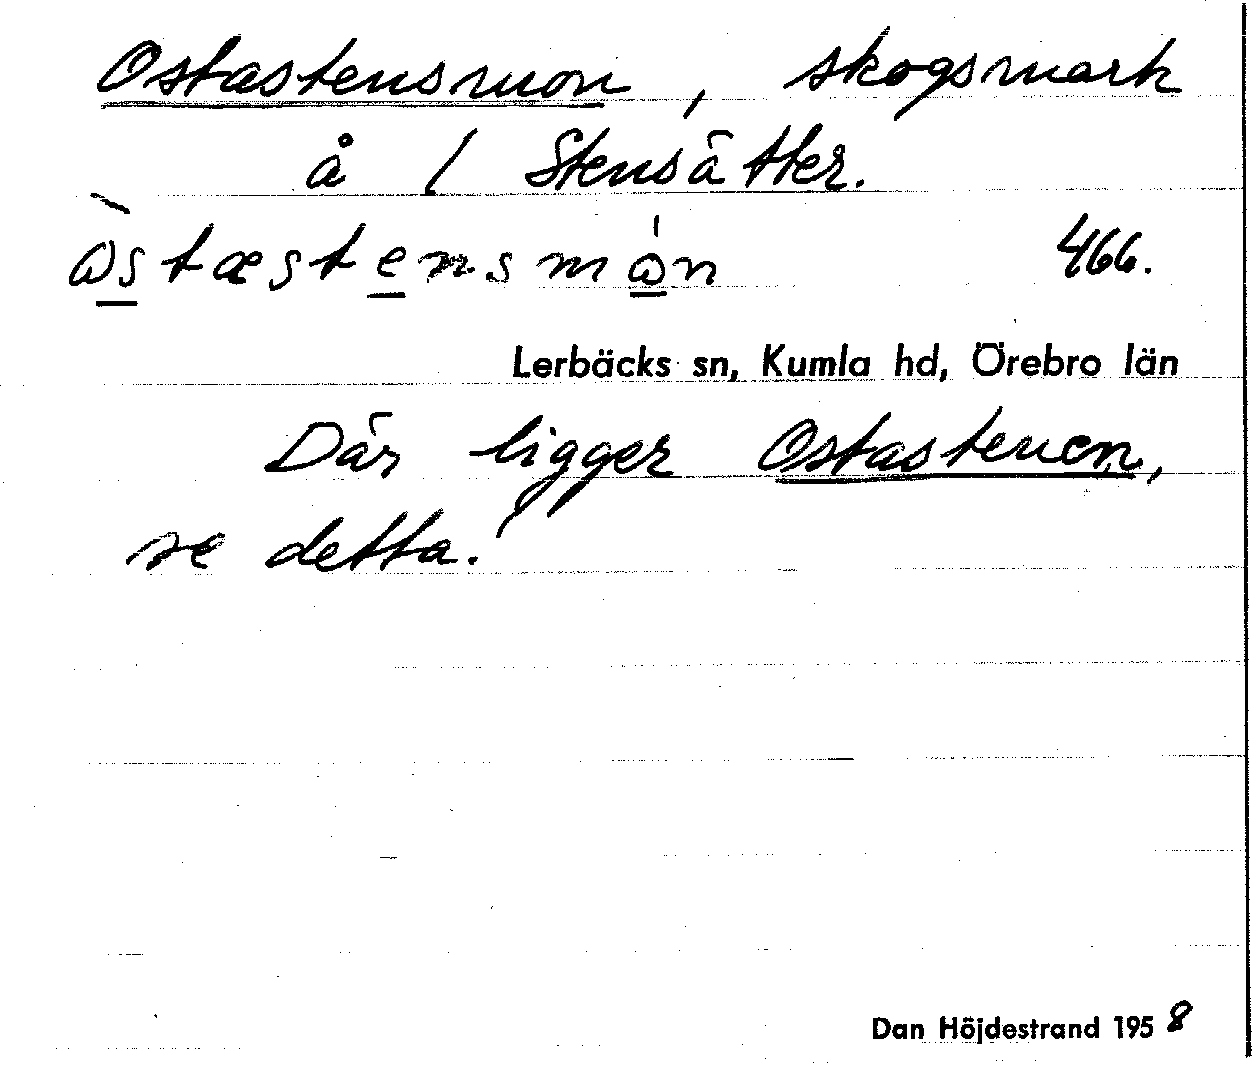 Ostastensmon, skogsmark
å / Stensätter.
ὼstæstensmώn 466.
Lerbäcks sn, Kumla hd, Örebro län
Där ligger Ostastenen,
se detta.
Dan Höjdestrand 1958